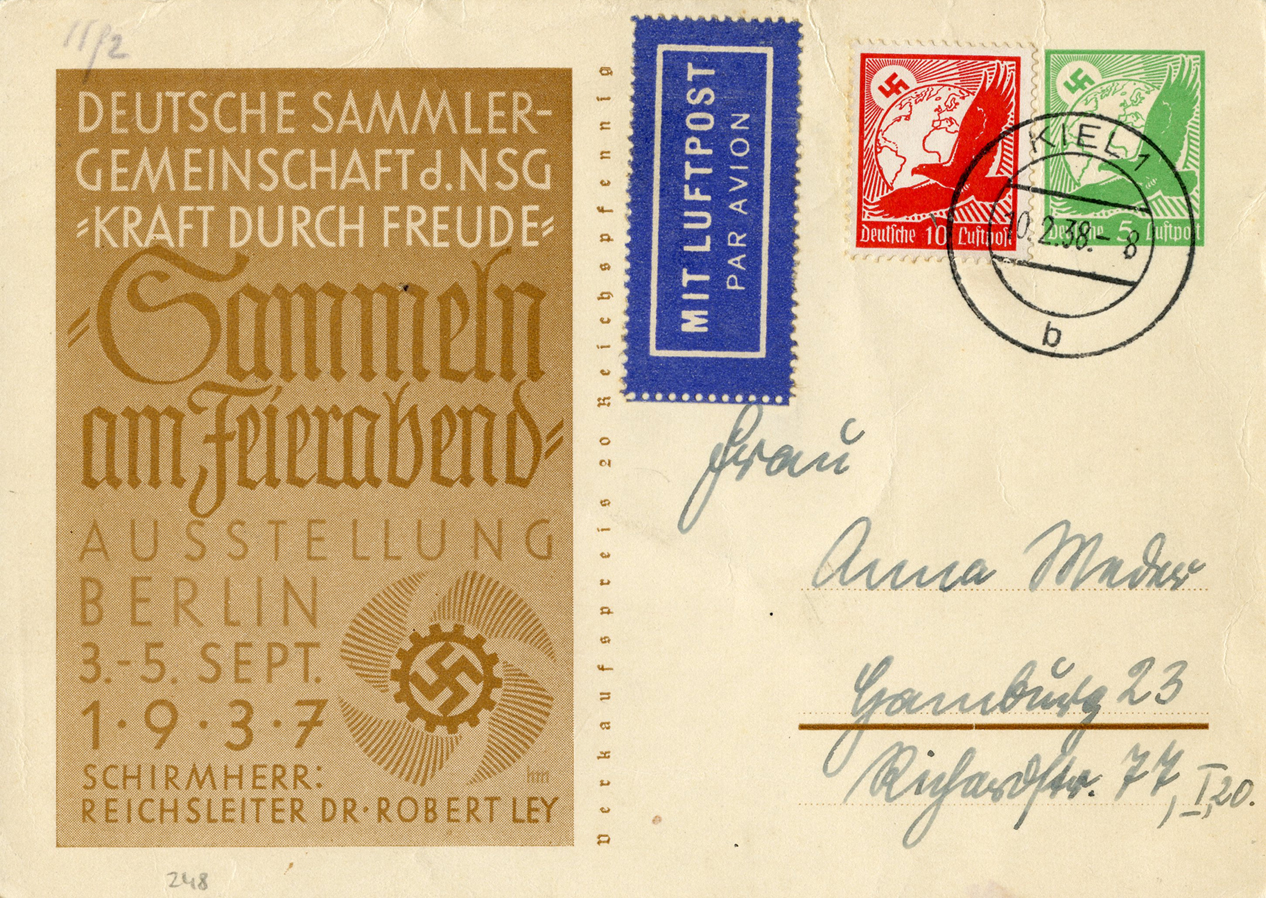 11/2
DEUTSCHE SAMMLER-
GEMEINSCHAFT d. NSG
"KRAFT DURCH FREUDE"
"Sammeln
am Feierabend"
AUSSTELLUNG
BERLIN
3.-5. SEPT.
1·9·3·7
SCHIRMHERR:
REICHSLEITER DR· ROBERT LEY
hm
248
Verkaufspreis 20 Reichspfennig
MIT LUFTPOST
PAR AVION
Deutsche 10 Luftpost
Deutsche 5 Luftpost
KIEL 1
10.2.38.- 8
b
Frau
Anna Meder
Hamburg 23
Richardstr. 77, I, 20.